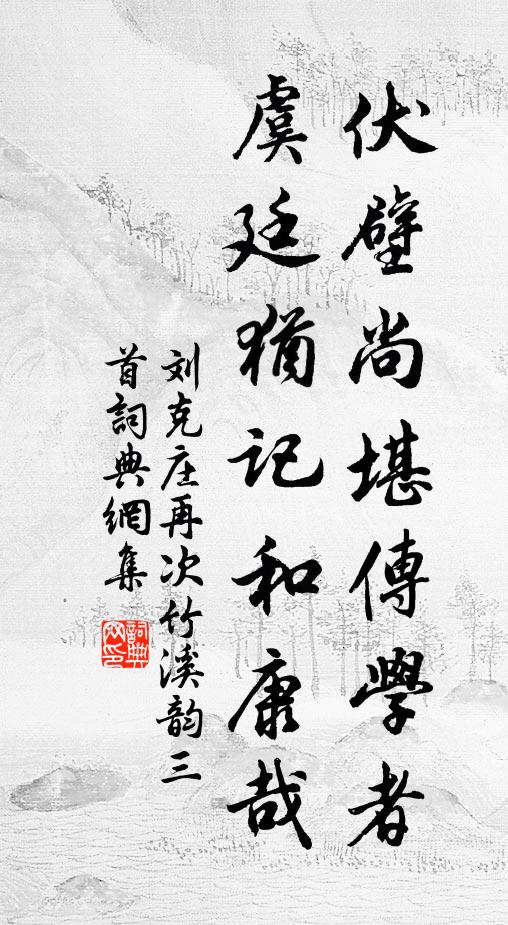 伏壁尚堪傳學者
虞廷猶記和康哉
刘克庄再次竹溪韵三
首詞典網集
詞典
网印